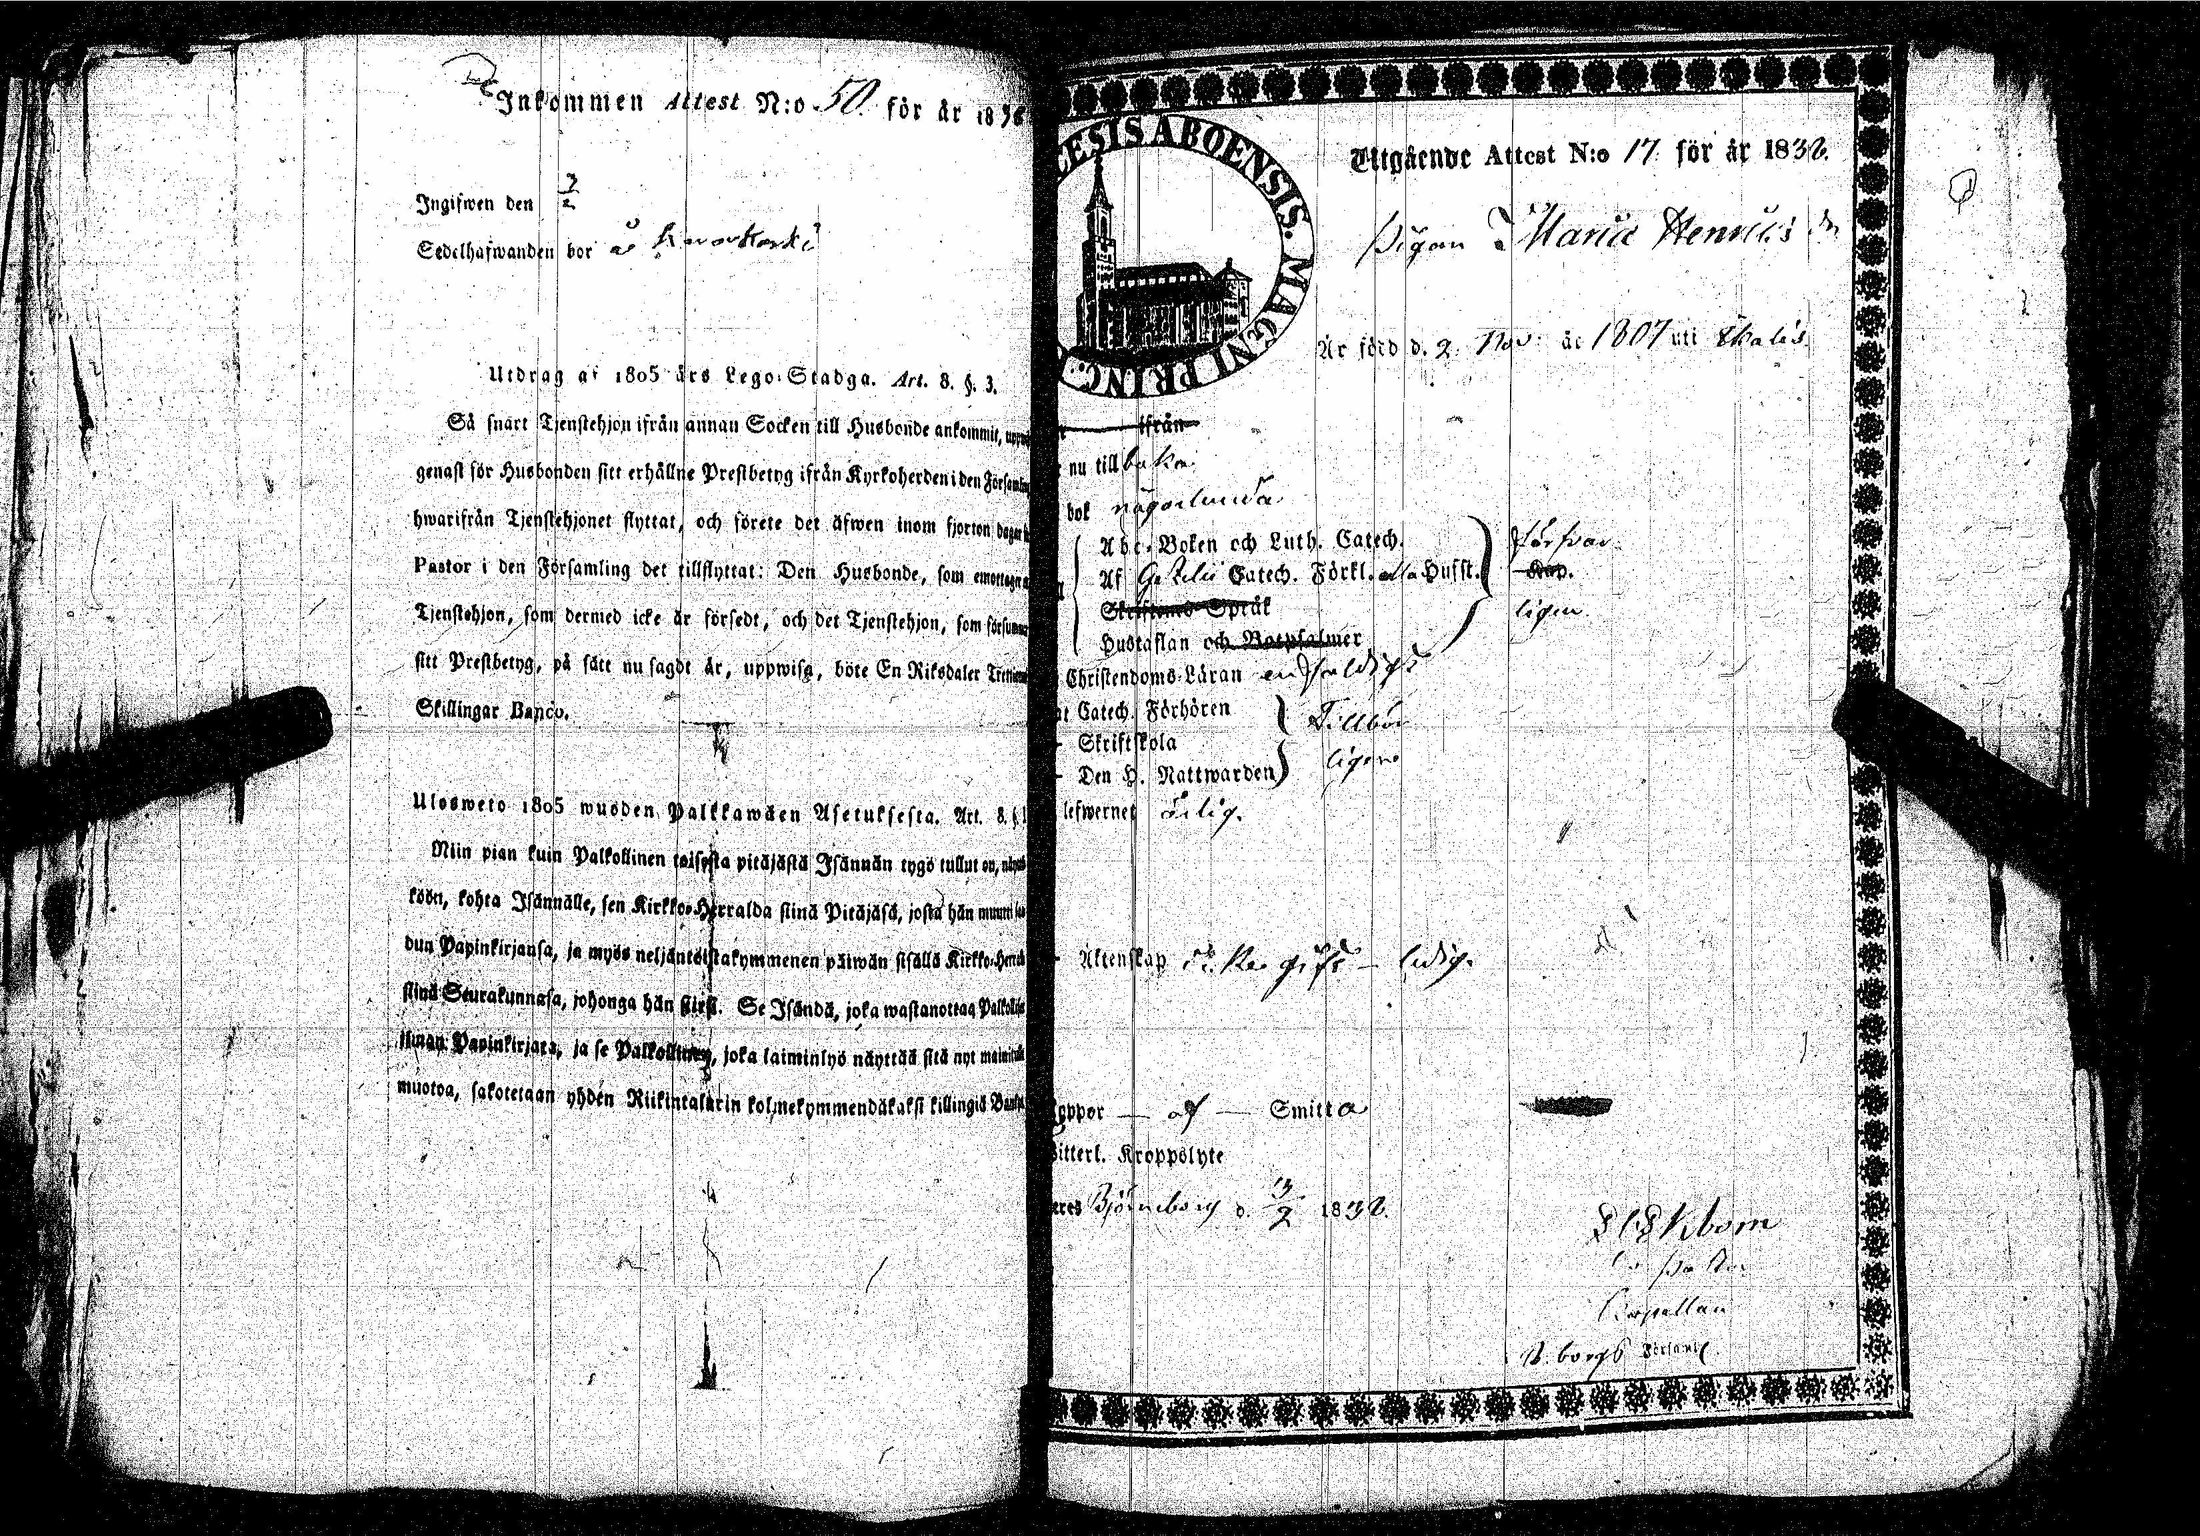 Inkommen Attest N:o 50. för år 1836
Ingifwen den 7/2
Sedelhafwanden bor å
Utdrag af 1805 års Lego-Stadga. Art. 8. §. 3.
Så snart Tjenstehjon ifrån annan Socken till Husbonde ankommit,
genast för Husbonden sitt erhållne Prestbetyg ifrån Kyrkoherden i den
hwarifrån Tjenstehjonet flyttat, och förete det äfwen inom fjorton dagar
Pastor i den Församling det tillflyttat: Den Husbonde, som
Tjenstehjon, som dermed icke är försedt, och det Tjenstehjon, som
sitt Prestbetyg, på sätt nu sagdt är, uppwisa, böte En Riksdaler
Skillingar Banco.
Ulosweto 1805 wuoden Palkkawäen Asetuksesta. Art. 8. §
Niin pian kuin Palkollinen toisesta pitäjästä Isännän tygö tullut on,
köön, kohta Isännälle, sen Kirkko-Herralda siinä Pitäjäsä, josta hän
dun Papinkirjansa, ja myös neljäntoistakymmenen päiwän sisällä
siinä Seurakunnasa, johonga hän siirst. Se Isändä, joka wastanottaa
ilman Papinkirjata, ja se Palkollinen, joka laiminlyö näyttää sitä nyt
muotoa, sakotetaan yhden Riikintalarin kolmekymmendäkaksi killingiä
ESIS ABOENSIS. MAGNI PRINC.
Utgående Attest N:o 17. för år 1838.
Pigan Maria Henrics dr
Är född d. 2. Nov. år 1807 uti
ifrån
nu tillbaka
bok någorlunda
Abc-Boken och Luth. Catech. Förswar
Af Gezelii Catech. Förkl. Hufst. Kap.
Skriftenes Språk ligen
Hustaflan och Botpsalmer
Christendoms-Läran enfaldigt
Catech. Förhören Tillbör
Skriftskola
Den H. Nattwarden ligen
lefwernet ärlig.
Äktenskap icke gift – ledig.
Koppor — af — Smitta
Kroppslyte
Björneborg d. 13/2 1838.
Ekbom
Capellan
B.borgs Församl.